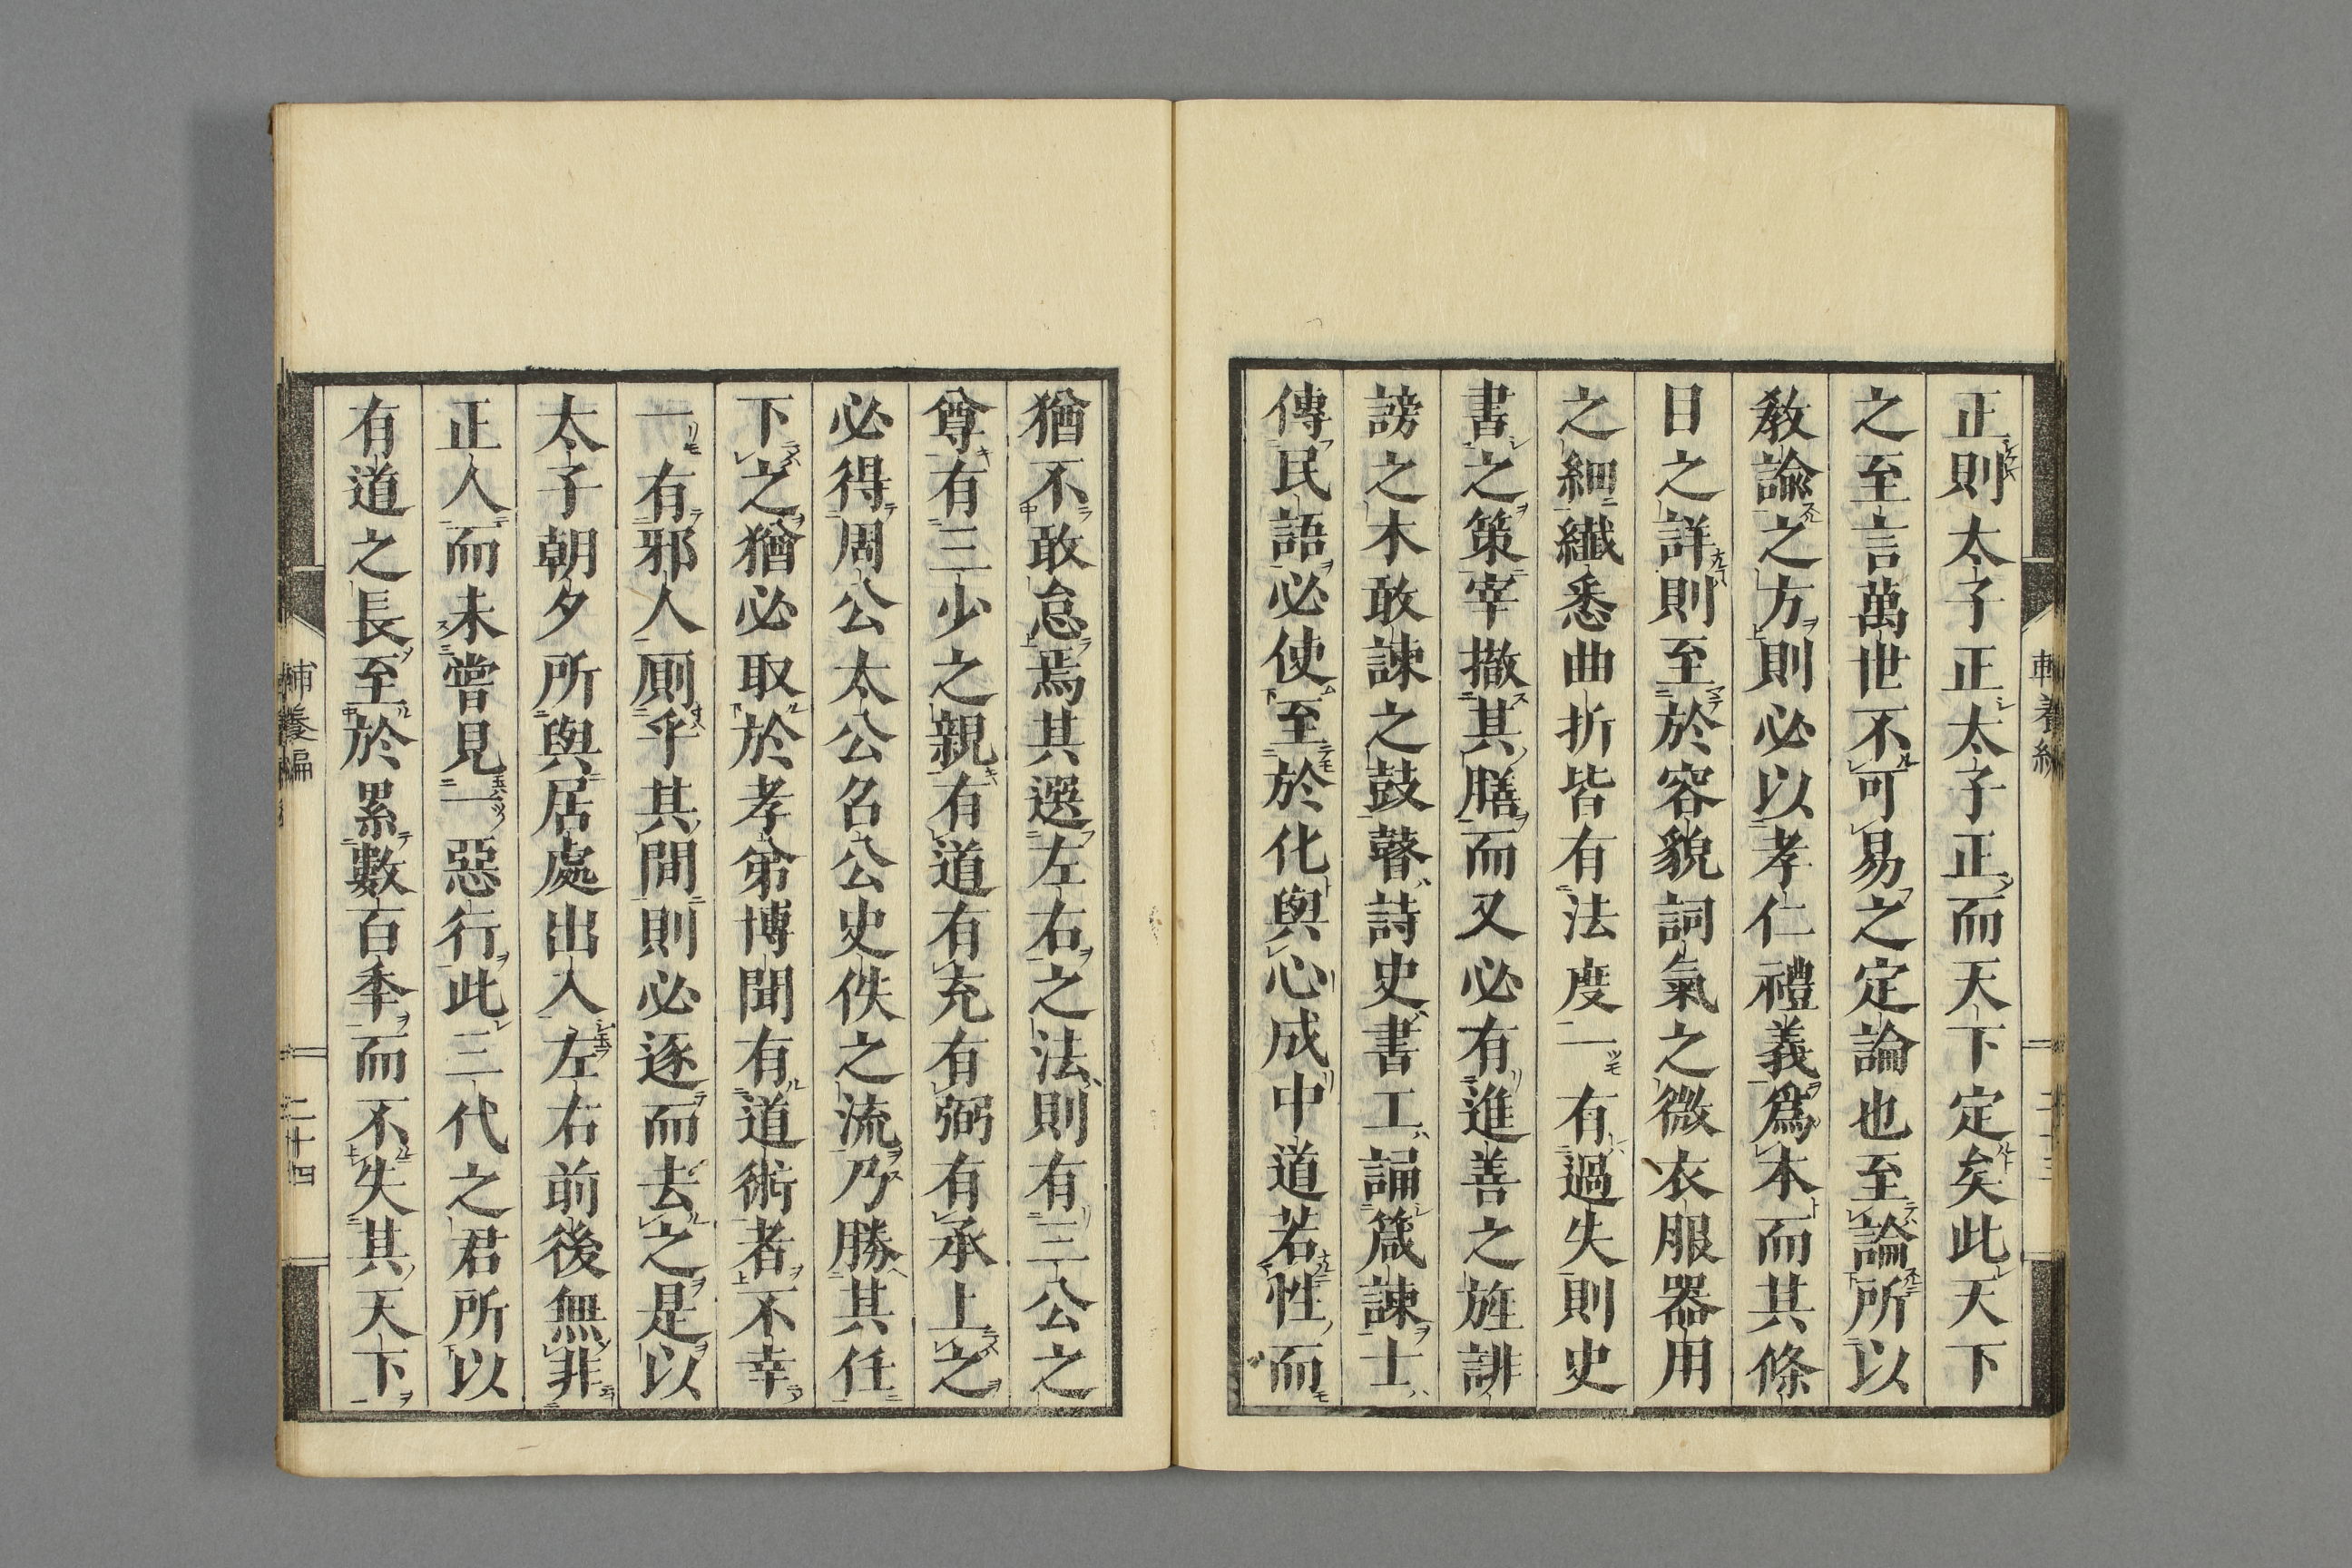 正則太子正太子正而天下定矣此天下
之至言萬世不可易之定論也至論所以
敎諭之方則必以孝仁禮義爲本而其條
日之詳則至於容貌詞氣之微衣服器用
之細纖悉曲折皆有法度一有過失則史
書之策宰撤其膳而又必有進善之旌誹
謗之木敢諫之鼓瞽詩史書工誦箴諫士
傳民語必使至於化與心成中道若性而
猶不敢怠焉其選左右之法則有三公之
尊有三少之親有道有充有弼有承上之
必得周公太公召公史佚之流乃勝其任
下之猶必取於孝弟博聞有道術者不幸
一有邪人厠乎其間則必逐而去之是以
太子朝夕所與居處出入左右前後無非
正人而未嘗見一惡行此三代之君所以
有道之長至於累數百秊而不失其天下
輔養編
二十四